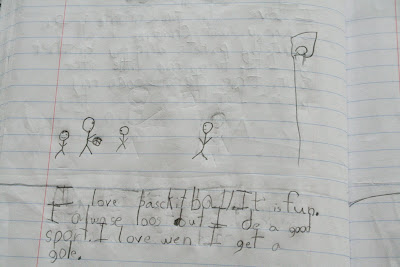 I love basckitball. It is fun.
I alwase loos but I be a good
sport. I love wen I get a
gole.